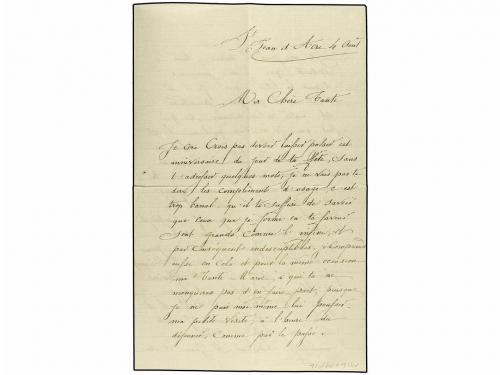 St Jean d'Acre 4 Août
Ma Chère Tante
Je ne Crois pas devoir laisser passer cet
anniversaire du jour de ta fête, sans
t'adresser quelques mots, je ne vais pas te
dire les compliments d'usage c'est
trop banal qu'il te suffise de savoir
que ceux que je forme en ta faveur
sont grands comme l'infini, et
par conséquent indescriptibles,
en cela et pour la même occasion
ma Tante Marie, à qui tu ne
manqueras pas d'en faire part, puisque
je ne puis moi même lui
ma petite visite, à l'heure du
déjeuner, comme par le passé.